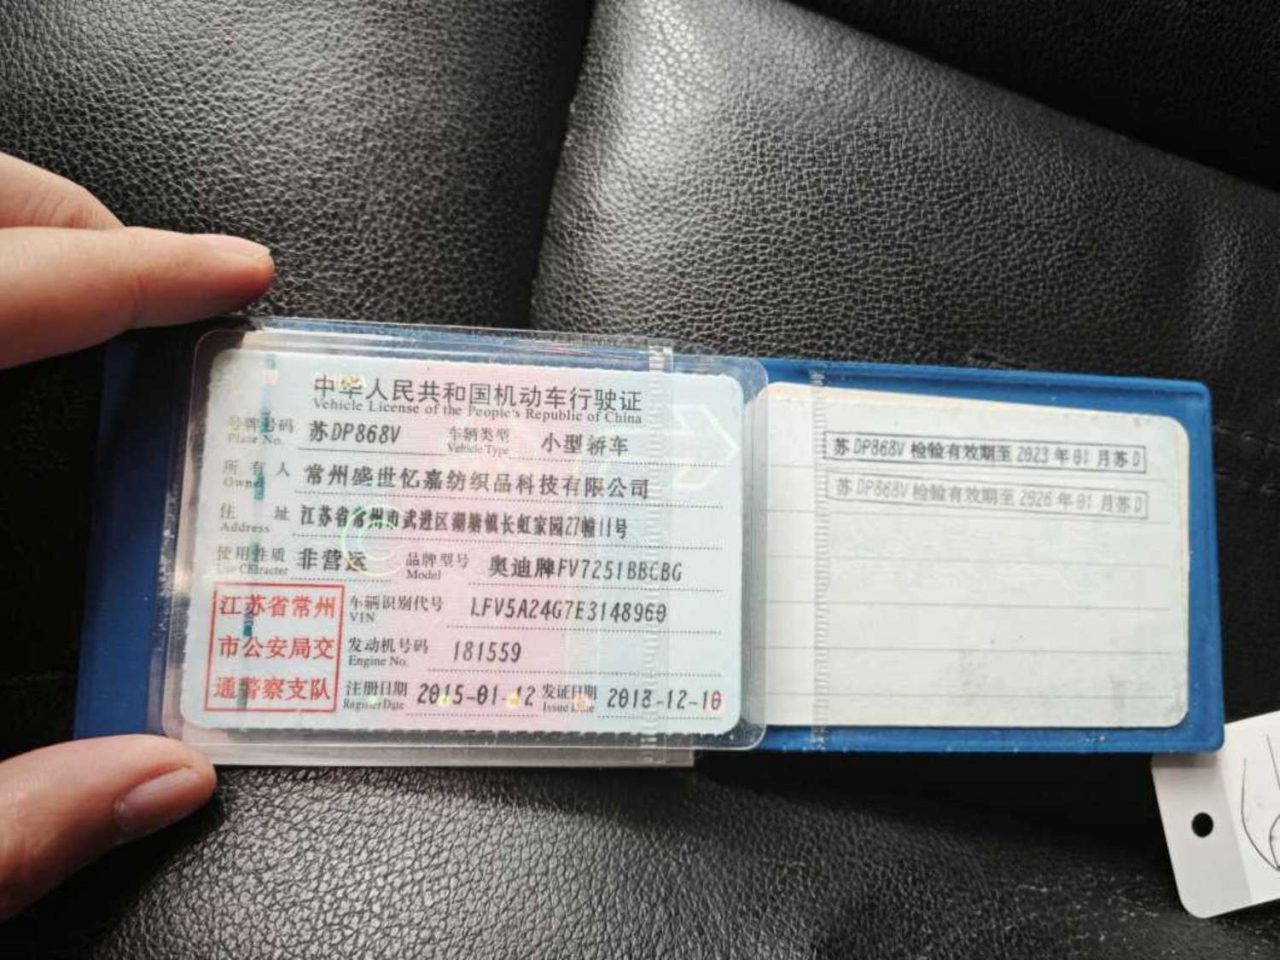 中华人民共和国机动车行驶证
Vehicle License of the People's Republic of China
号牌号码 Plate No. 苏DP868V 车辆类型 Vehicle Type 小型轿车
所有人 Owner 常州盛世忆嘉纺织品科技有限公司
住址 Address 江苏省常州市武进区湖塘镇长虹家园27幢11号
使用性质 Use Character 非营运 品牌型号 Model 奥迪牌FV7251BBCBG
车辆识别代号 VIN LFV5A24G7E3148960
发动机号码 Engine No. 181559
注册日期 Register Date 2015-01-12 发证日期 Issue Date 2018-12-10
江苏省常州
市公安局交
通警察支队
苏DP868V 检验有效期至 2023 年 01 月苏D
苏DP868V 检验有效期至 2026 年 01 月苏D